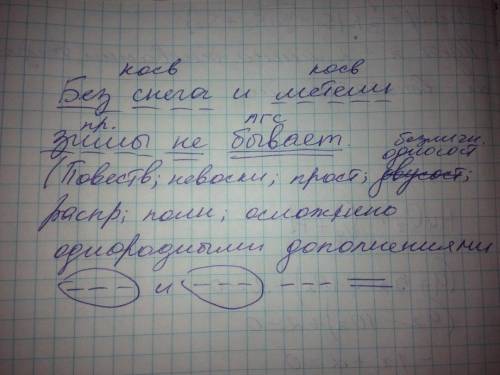 косв косв
Без снега и метели
пр. пгс
зимы не бывает. безличн.
односост
(Повеств; невоскл; прост; двусост;
распр; полн; осложнено
однородными дополнениями
и